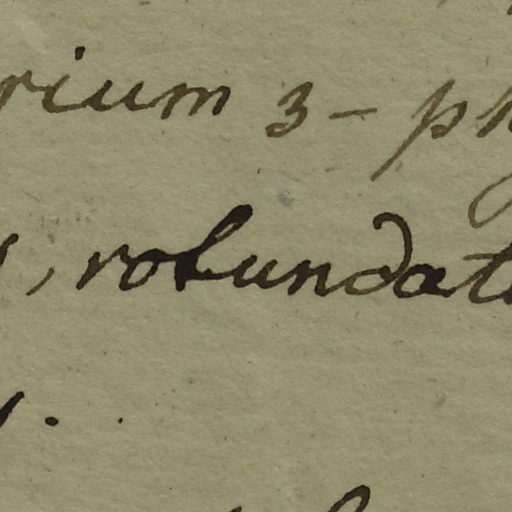 rium 3-ph
, rotundat
.